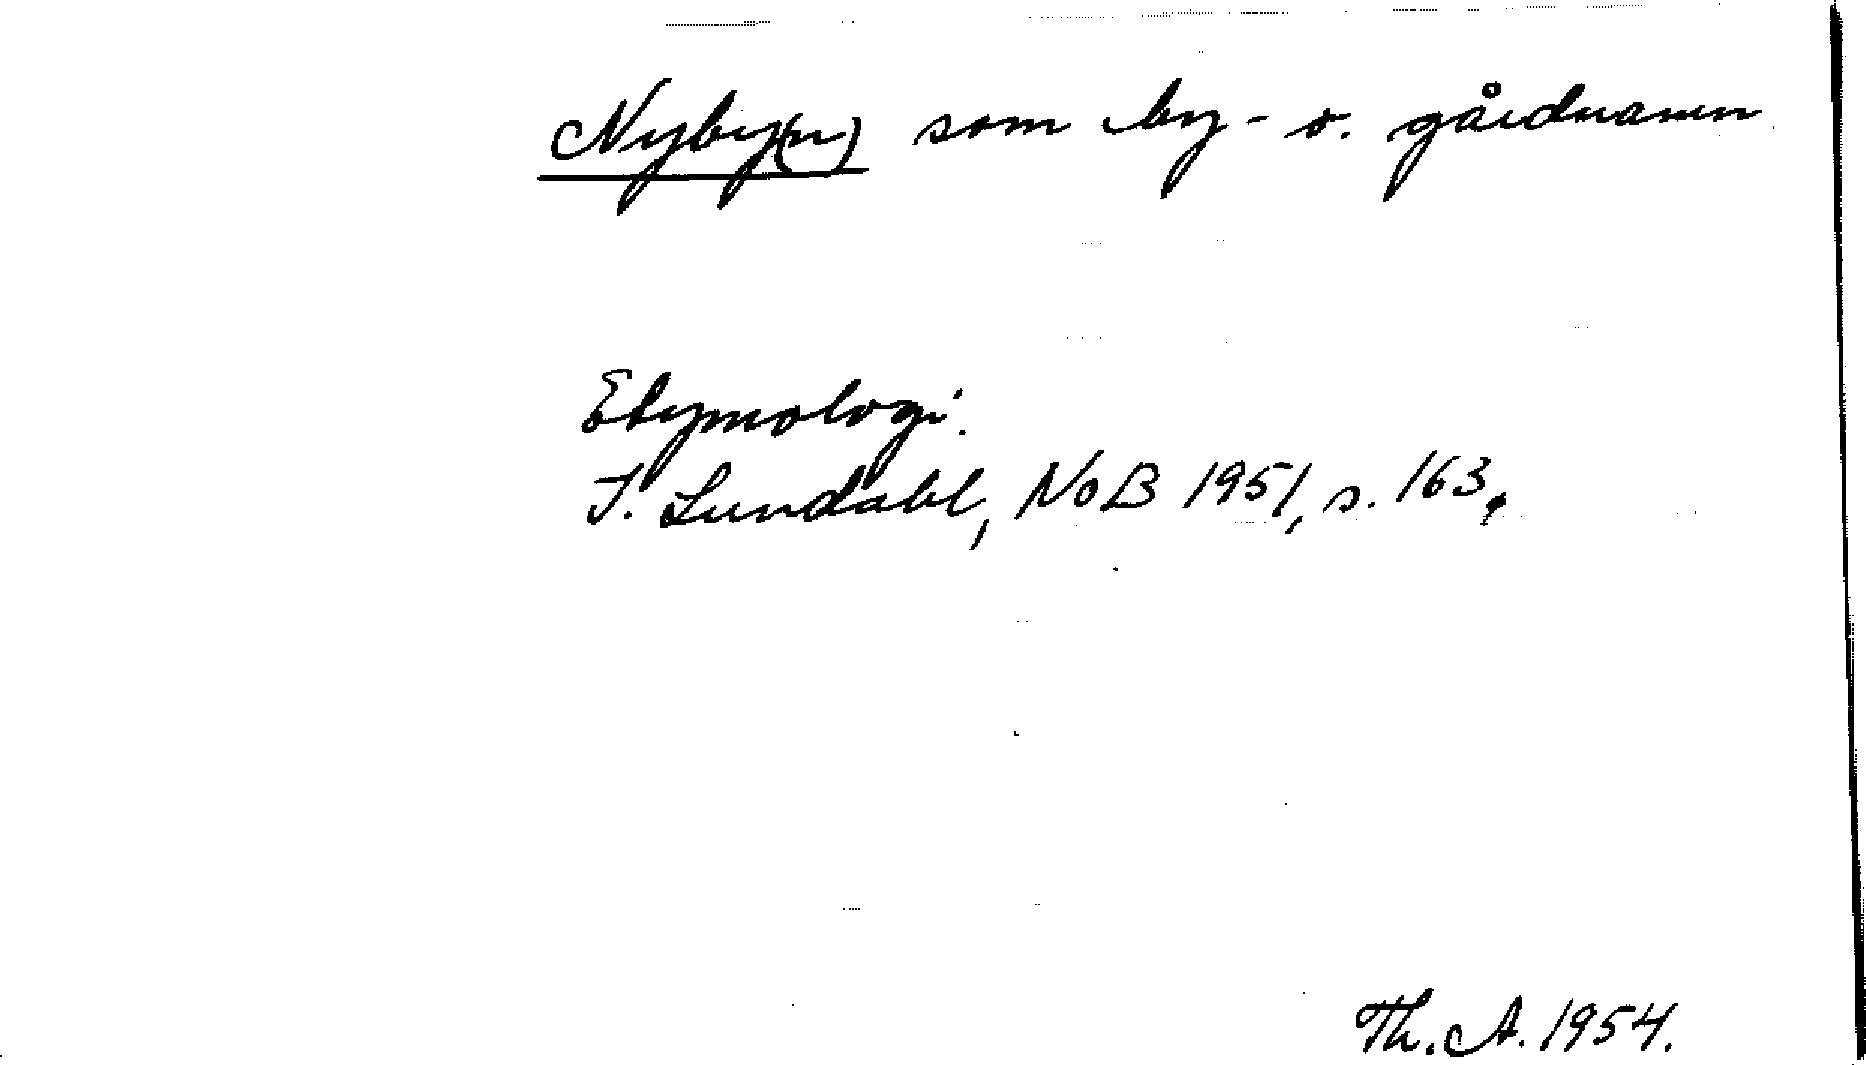 Nyby(n) som by- o. gårdnamn
Etymologi.
I. Lundahl, NoB 1951, s. 163.
Th. A. 1954.